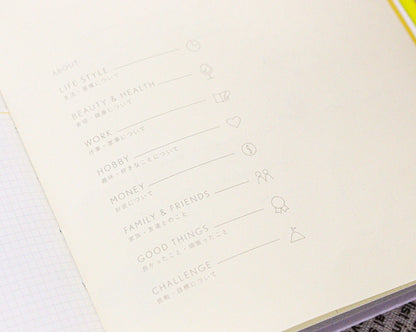 ABOUT
LIFE STYLE
生活・習慣について
BEAUTY & HEALTH
美容・健康について
WORK
仕事・家事について
HOBBY
趣味・好きなことについて
MONEY
お金について
FAMILY & FRIENDS
家族・友達とのこと
GOOD THINGS
良かったこと・頑張ったこと
CHALLENGE
挑戦・目標について